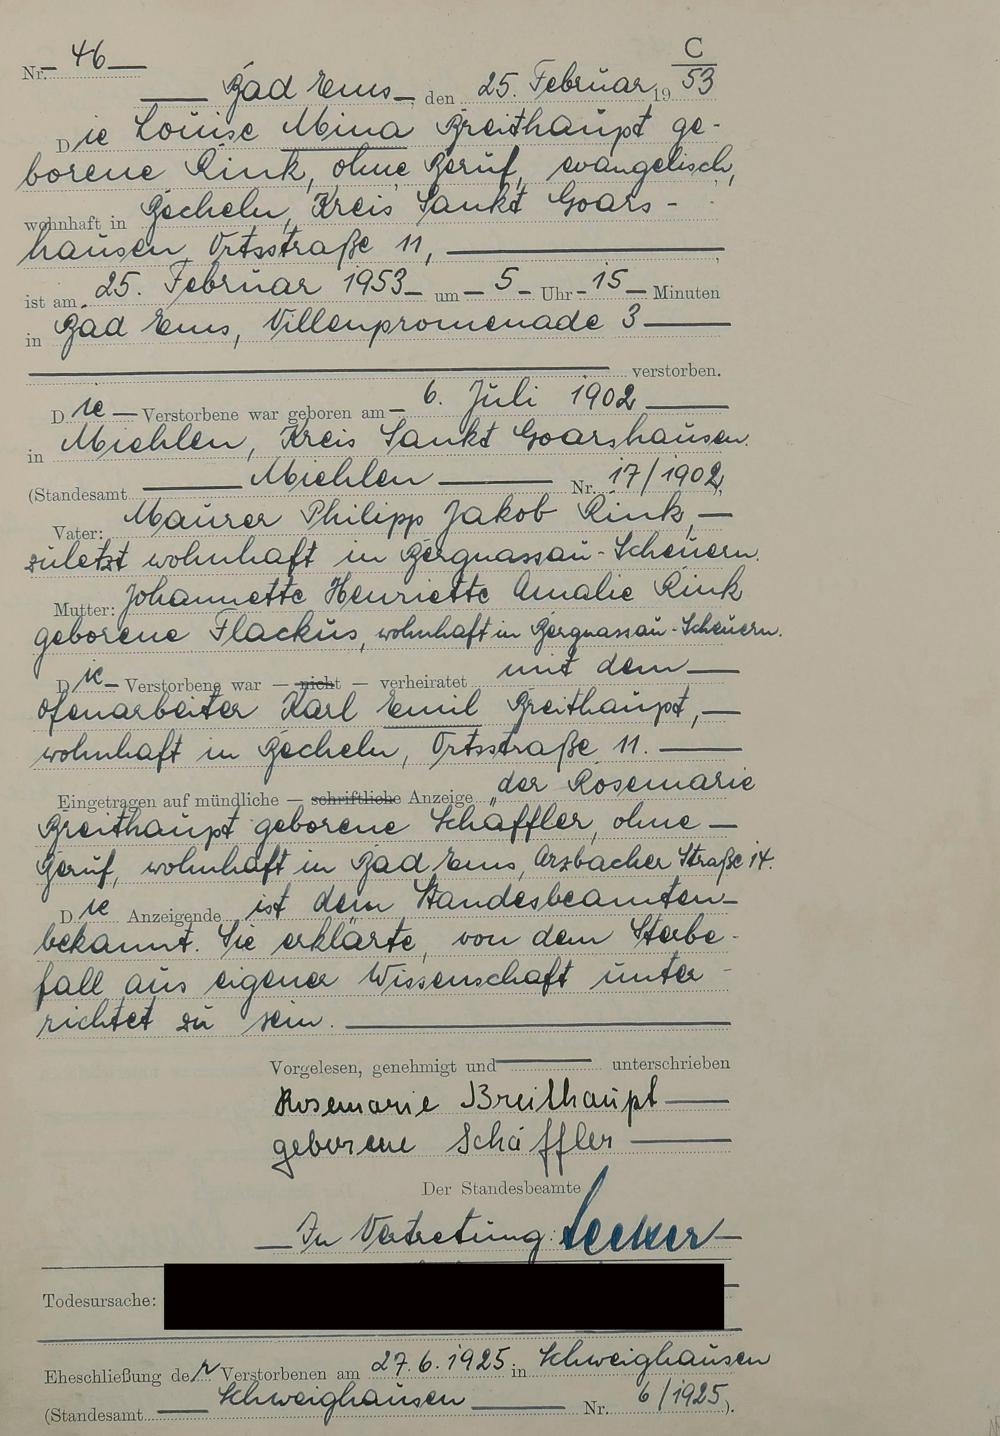 C
Nr. 46
Bad Ems, den 25. Februar 19 53
Die Louise Mina Breithaupt ge-
borene Rink, ohne Beruf, evangelisch,
wohnhaft in Becheln, Kreis Sankt Goars-
hausen, Ortsstraße 11,
ist am 25. Februar 1953 um 5 Uhr 15 Minuten
in Bad Ems, Villenpromenade 3
verstorben.
Die Verstorbene war geboren am 6. Juli 1902
in Miehlen, Kreis Sankt Goarshausen.
(Standesamt Miehlen Nr. 17/1902)
Vater: Maurer Philipp Jakob Rink,
zuletzt wohnhaft in Bergnassau-Scheuern.
Mutter: Johannette Henriette Amalie Rink
geborene Flackus, wohnhaft in Bergnassau-Scheuern.
Die Verstorbene war — nicht — verheiratet mit dem
Ofenarbeiter Karl Emil Breithaupt,
wohnhaft in Becheln, Ortsstraße 11.
Eingetragen auf mündliche — schriftliche Anzeige der Rosemarie
Breithaupt geborene Schäffler, ohne
Beruf, wohnhaft in Bad Ems, Arzbacher Straße 14.
Die Anzeigende ist dem Standesbeamten
bekannt. Sie erklärte, von dem Sterbe-
fall aus eigener Wissenschaft unter-
richtet zu sein.
Vorgelesen, genehmigt und unterschrieben
Rosemarie Breithaupt
geborene Schäffler
Der Standesbeamte
In Vertretung:
Todesursache:
Eheschließung der Verstorbenen am 27.6.1925 in Schweighausen
(Standesamt Schweighausen Nr. 6/1925).